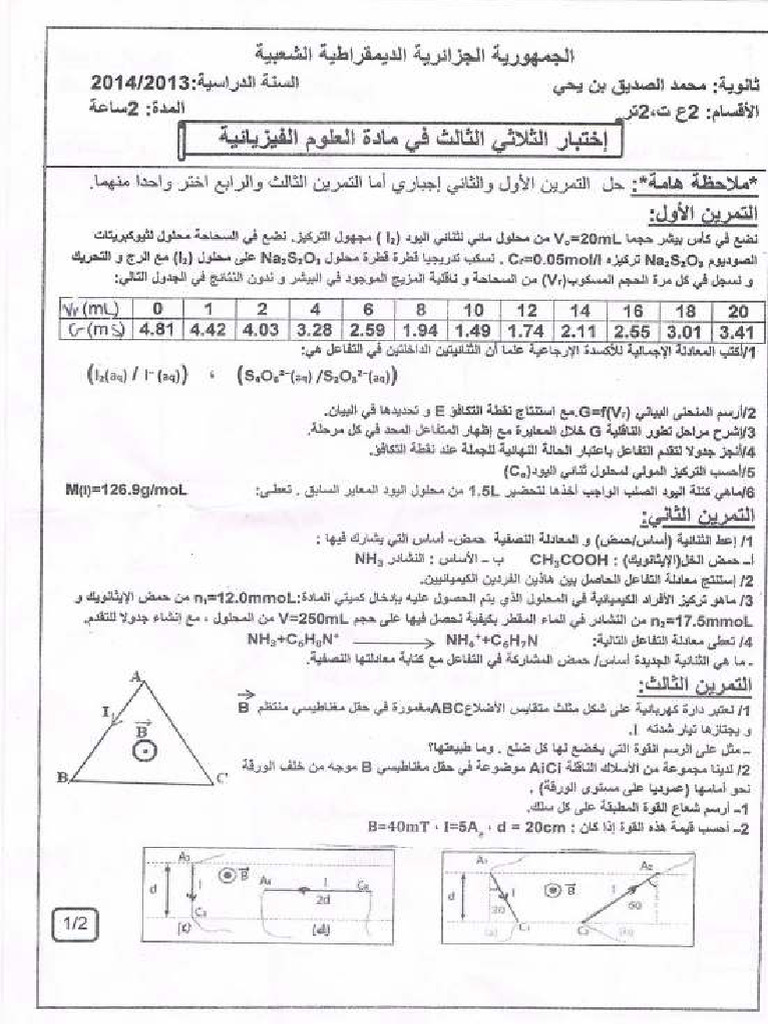 الجمهورية الجزائرية الديمقراطية الشعبية
ثانوية: محمد الصديق بن يحي السنة الدراسية:2014/2013
الأقسام: 2ع ت،2تر المدة: 2ساعة
إختبار الثلاثي الثالث في مادة العلوم الفيزيائية
*ملاحظة هامة*: حل التمرين الأول والثاني إجباري أما التمرين الثالث والرابع اختر واحدا منهما.
التمرين الأول:
نضع في كأس بيشر حجما V₀=20mL من محلول مائي لثنائي اليود (I₂) مجهول التركيز. نضع في السحاحة محلول لثيوكبريتات
الصوديوم Na₂S₂O₃ تركيزه Cr=0.05mol/l . نسكب تدريجيا قطرة قطرة محلول Na₂S₂O₃ على محلول (I₂) مع الرج و التحريك
و نسجل في كل مرة الحجم المسكوب(Vr) من السحاحة و ناقلية المزيج الموجود في البيشر و ندون النتائج في الجدول التالي:
Vr(mL) 0 1 2 4 6 8 10 12 14 16 18 20
G(ms) 4.81 4.42 4.03 3.28 2.59 1.94 1.49 1.74 2.11 2.55 3.01 3.41
1/أكتب المعادلة الإجمالية للأكسدة الإرجاعية علما أن الثنائيتين الداخلتين في التفاعل هي:
(I₂(aq) / I⁻(aq)) ، (S₄O₆²⁻(aq) /S₂O₃²⁻(aq))
2/أرسم المنحنى البياني G=f(Vr).مع استنتاج نقطة التكافؤ E و تحديدها في البيان.
3/إشرح مراحل تطور الناقلية G خلال المعايرة مع إظهار المتفاعل المحد في كل مرحلة.
4/أنجز جدولا لتقدم التفاعل باعتبار الحالة النهائية للجملة عند نقطة التكافؤ.
5/أحسب التركيز المولي لمحلول ثنائي اليود(C₀)
6/ماهي كتلة اليود الصلب الواجب أخذها لتحضير 1.5L من محلول اليود المعاير السابق . تعطى: M(I)=126.9g/moL
التمرين الثاني:
1/ إعط الثنائية (أساس/حمض) و المعادلة النصفية حمض- أساس التي يشارك فيها :
أ- حمض الخل(الإيثانويك) : CH₃COOH ب – الأساس : النشادر NH₃
2/ إستنتج معادلة التفاعل الحاصل بين هاذين الفردين الكيميائيين.
3/ ماهو تركيز الأفراد الكيميائية في المحلول الذي يتم الحصول عليه بإدخال كميتي المادة:n₁=12.0mmoL من حمض الإيثانويك و
n₂=17.5mmoL من النشادر في الماء المقطر بكيفية نحصل فيها على حجم V=250mL من المحلول ، مع إنشاء جدولا للتقدم.
4/ تعطى معادلة التفاعل التالية: NH₃+C₆H₈N⁺ → NH₄⁺+C₆H₇N
- ما هي الثنائية الجديدة أساس/ حمض المشاركة في التفاعل مع كتابة معادلتها النصفية.
التمرين الثالث:
1/ نعتبر دارة كهربائية على شكل مثلث متقايس الأضلاعABCمغمورة في حقل مغناطيسي منتظم B
و يجتازها تيار شدته I.
– مثل على الرسم القوة التي يخضع لها كل ضلع . وما طبيعتها؟
2/ لدينا مجموعة من الأسلاك الناقلة AiCi موضوعة في حقل مغناطيسي B موجه من خلف الورقة
نحو أمامها (عموديا على مستوى الورقة) .
1- أرسم شعاع القوة المطبقة على كل سلك.
2- أحسب قيمة هذه القوة إذا كان : B=40mT ، I=5A ، d = 20cm
A
I
B
B C
A₃ d I B C₃ (c)
A₄ I C₄ 2d (d)
A₁ d I 30 C₁ (a)
B
A₂ I 60 C₂
1/2